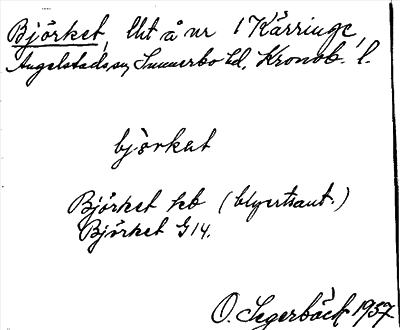 Björket, lht å nr 1 Kärringe,
Angelstads sn, Sunnerbo hd, Kronob. l.
bjòrkət
Björket hb (blyertsant.)
Björket G 14.
O. Segerbäck 1937